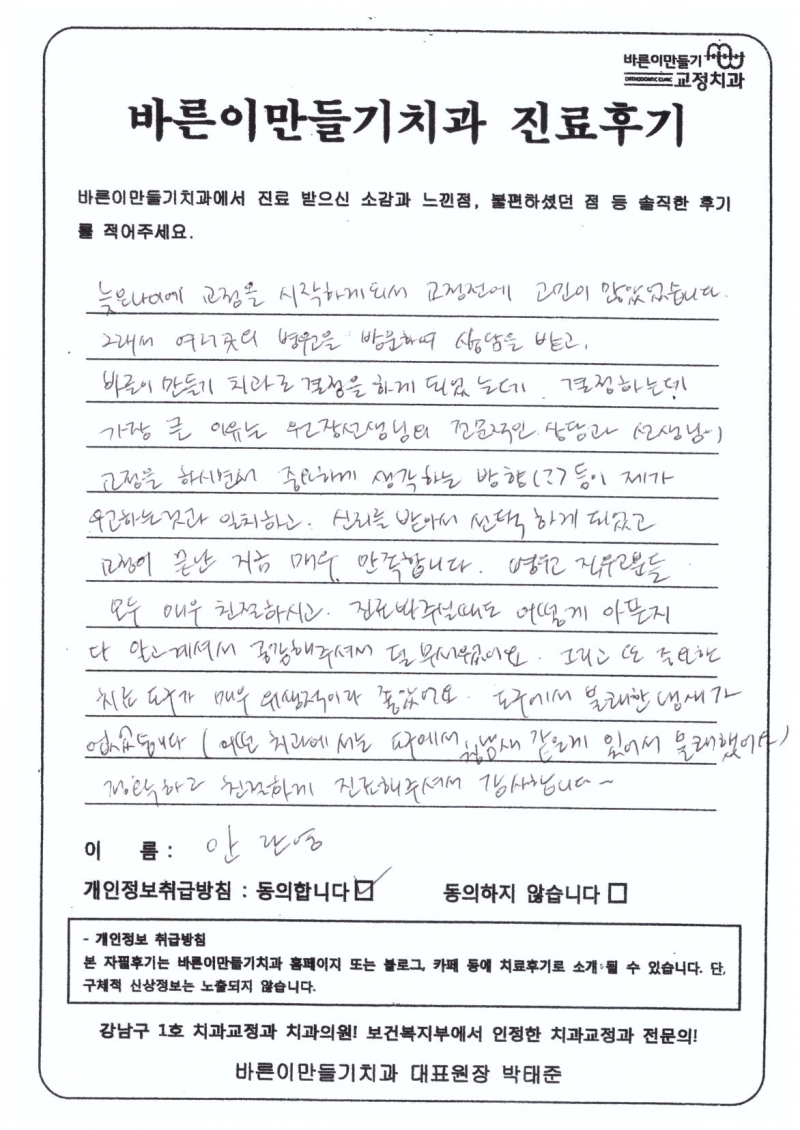 바른이만들기
ORTHODONTIC CLINIC 교정치과
바른이만들기치과 진료후기
바른이만들기치과에서 진료 받으신 소감과 느낀점, 불편하셨던 점 등 솔직한 후기
를 적어주세요.
늦은나이에 교정을 시작하게되서 교정전에 고민이 많았었습니다.
그래서 여러곳의 병원을 방문하여 상담을 받고,
바른이 만들기 치과로 결정을 하게 되었는데. 결정하는데
가장 큰 이유는 원장선생님의 전문적인 상담과 선생님이
교정을 하시면서 중요하게 생각하는 방향(?) 등이 제가
원하는것과 일치하고. 신뢰를 받아서 선택하게 되었고
교정이 끝난 지금 매우 만족합니다. 병원 직원분들
모두 매우 친절하시고. 진료봐주실때도 어떻게 아픈지
다 알고계셔서 공감해주셔서 덜 무서웠어요. 그리고 또 중요한
치료 도구가 매우 위생적이라 좋았어요. 도구에서 불쾌한 냄새가
없습니다 (어떤 치과에서는 도구에서 침냄새 같은게 있어서 불쾌했어요)
꼼꼼하고 친절하게 진료해주셔서 감사합니다~
이 름 : 안
개인정보취급방침 : 동의합니다 ☑ 동의하지 않습니다 □
- 개인정보 취급방침
본 자필후기는 바른이만들기치과 홈페이지 또는 블로그, 카페 등에 치료후기로 소개 될 수 있습니다. 단,
구체적 신상정보는 노출되지 않습니다.
강남구 1호 치과교정과 치과의원! 보건복지부에서 인정한 치과교정과 전문의!
바른이만들기치과 대표원장 박태준